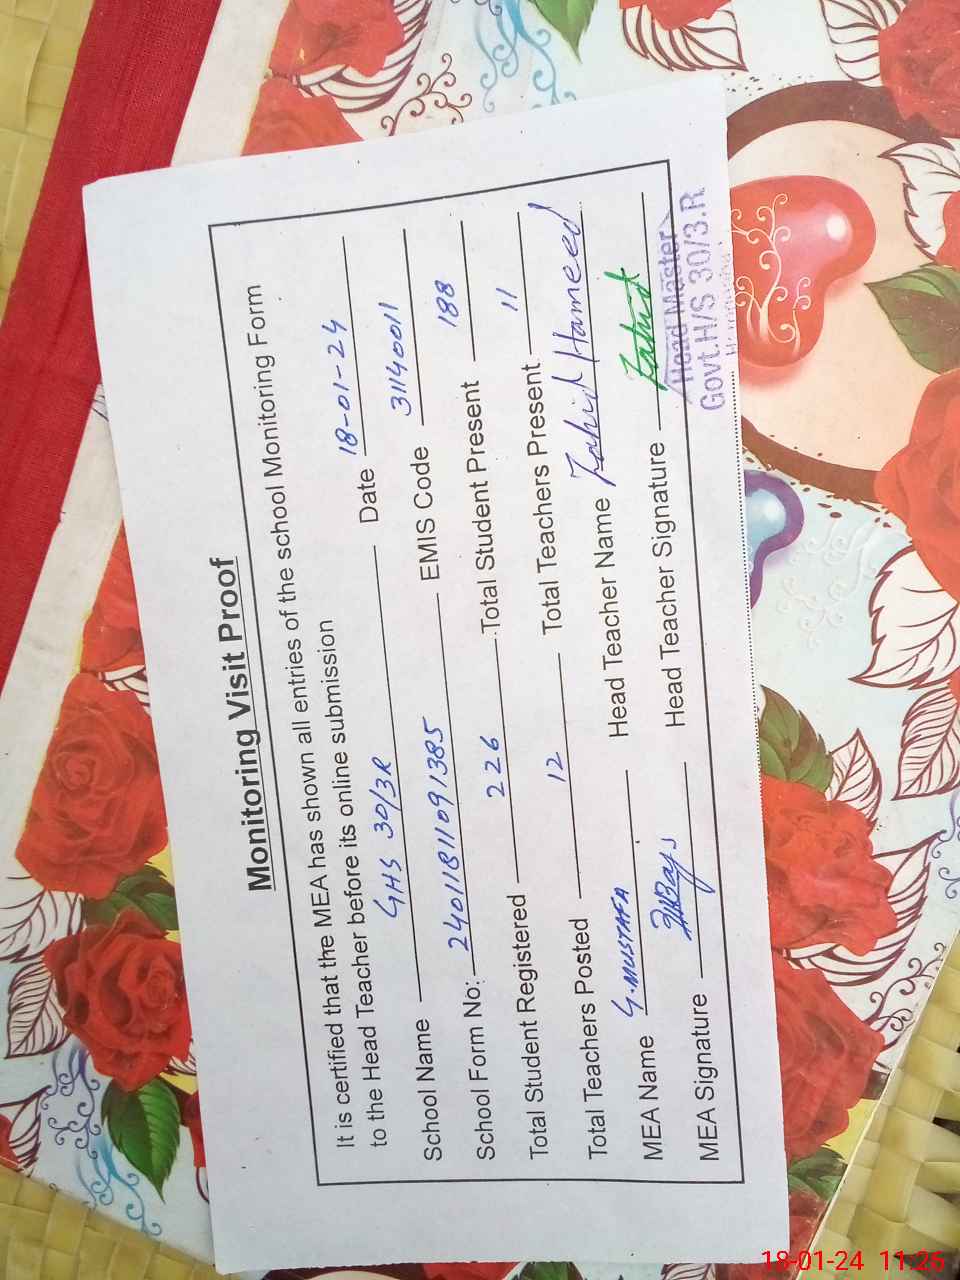 Monitoring Visit Proof
It is certified that the MEA has shown all entries of the school Monitoring Form
to the Head Teacher before its online submission
School Name GHS 30/3R Date 18-01-24
School Form No: 24011811091385 EMIS Code 31140011
Total Student Registered 226 Total Student Present 188
Total Teachers Posted 12 Total Teachers Present 11
MEA Name G.MUSTAFA Head Teacher Name Zahid Hameed
MEA Signature Head Teacher Signature Zahid
Head Master
Govt.H/S 30/3.R
18-01-24 11:26